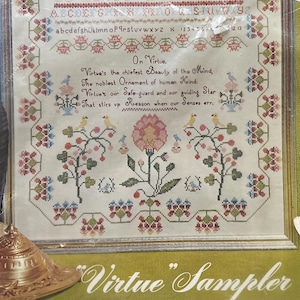 On Virtue.
Virtue's the chiefest Beauty of the Mind,
The noblest Ornament of human Kind.
Virtue's our Safe-guard and our guiding Star
That stirs up Reason when our Senses err.
"Virtue" Sampler